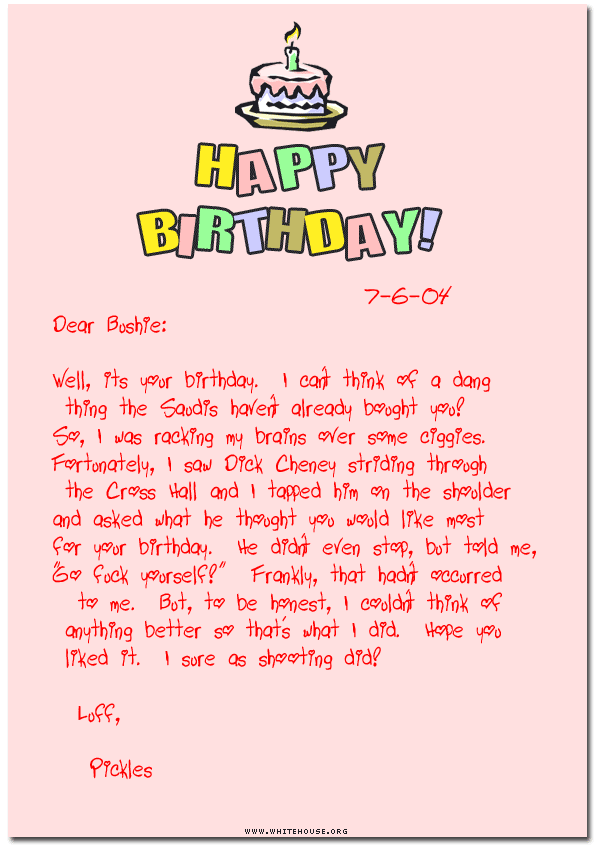 HAPPY
BIRTHDAY!
7-6-04
Dear Bushie:
Well, its your birthday. I can't think of a dang
thing the Saudis haven't already bought you!
So, I was racking my brains over some ciggies.
Fortunately, I saw Dick Cheney striding through
the Cross Hall and I tapped him on the shoulder
and asked what he thought you would like most
for your birthday. He didn't even stop, but told me,
"Go fuck yourself!" Frankly, that hadn't occurred
to me. But, to be honest, I couldn't think of
anything better so that's what I did. Hope you
liked it. I sure as shooting did!
Loff,
Pickles
WWW.WHITEHOUSE.ORG